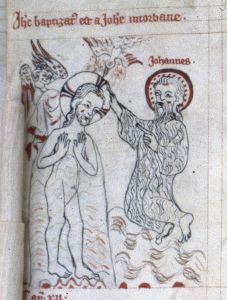 Ihc baptizat' est a Johe in iordane.
Johannes.
xii.